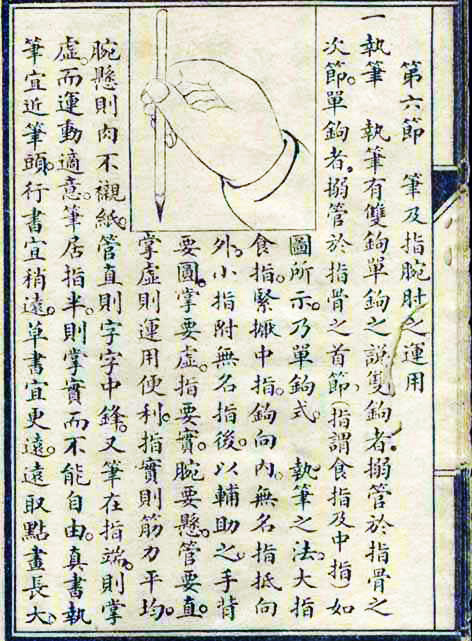 第六節　筆及指腕肘之運用
一　執筆　執筆有雙鉤單鉤之説。雙鉤者。搦管於指骨之
次節。單鉤者。搦管於指骨之首節、(指謂食指及中指)如
圖所示。乃單鉤式。　執筆之法。大指
食指。緊擫中指。鉤向內。無名指抵向
外。小指附無名指後。以輔助之。手背
要圓。掌要虛。指要實。腕要懸。管要直。
掌虛則運用便利。指實則筋力平均。
腕懸則肉不襯紙。管直則字字中鋒。又筆在指端。則掌
虛。而運動適意。筆居指半。則掌實而不能自由。真書執
筆宜近筆頭。行書宜稍遠。草書宜更遠。遠取點畫長大、